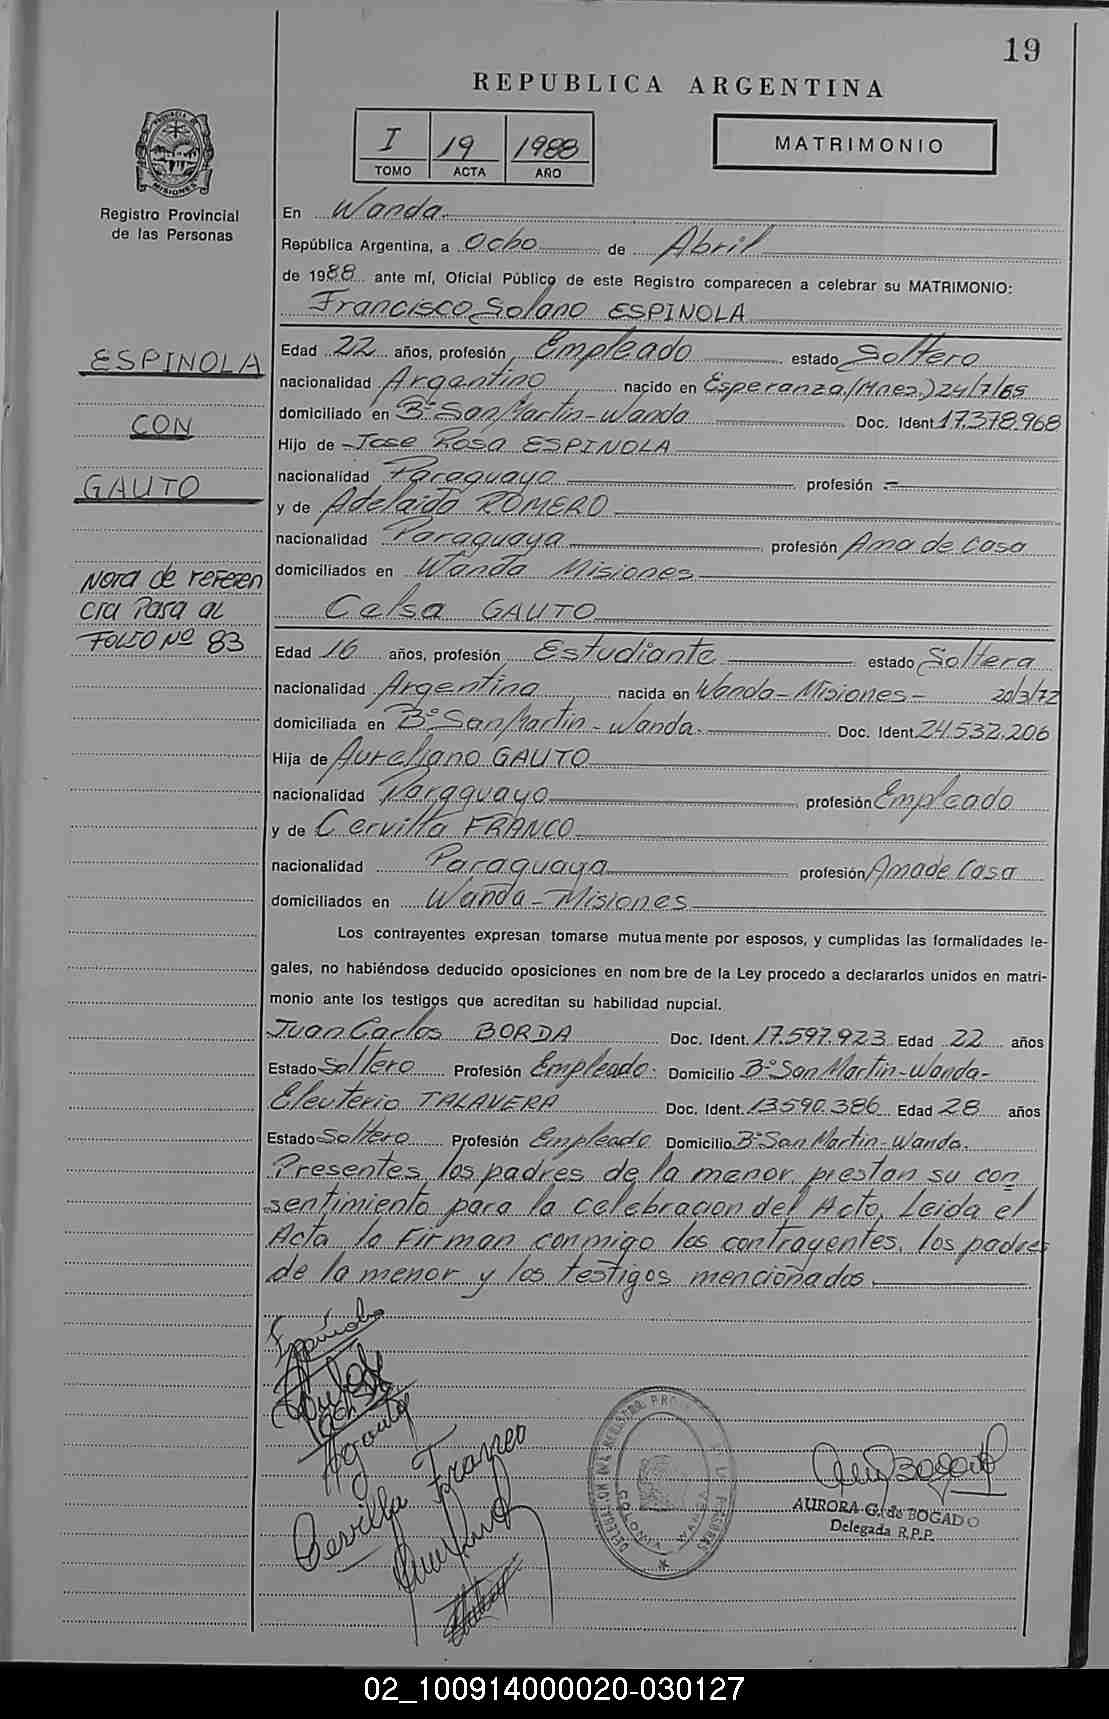 19
REPUBLICA ARGENTINA
I 19 1988
TOMO ACTA AÑO
MATRIMONIO
PROVINCIA DE
MISIONES
Registro Provincial
de las Personas
En Wanda
República Argentina, a Ocho de Abril
de 1988 ante mí, Oficial Público de este Registro comparecen a celebrar su MATRIMONIO:
Francisco Solano ESPINOLA
ESPINOLA
CON
GAUTO
Nota de referen
cia Pasa al
FOLIO Nº 83
Edad 22 años, profesión Empleado estado Soltero
nacionalidad Argentino nacido en Esperanza (Mnes.) 24/7/65
domiciliado en Bº San Martin - Wanda Doc. Ident. 17.378.968
Hijo de Jose Rosa ESPINOLA
nacionalidad Paraguayo profesión -
y de Adelaida ROMERO
nacionalidad Paraguaya profesión Ama de Casa
domiciliados en Wanda Misiones
Celsa GAUTO
Edad 16 años, profesión Estudiante estado Soltera
nacionalidad Argentina nacida en Wanda - Misiones - 20/3/72
domiciliada en Bº San Martin - Wanda. Doc. Ident. 24.532.206
Hija de Aureliano GAUTO
nacionalidad Paraguayo profesión Empleado
y de Cervilla FRANCO
nacionalidad Paraguaya profesión Ama de Casa
domiciliados en Wanda - Misiones
Los contrayentes expresan tomarse mutuamente por esposos, y cumplidas las formalidades le-
gales, no habiéndose deducido oposiciones en nombre de la Ley procedo a declararlos unidos en matri-
monio ante los testigos que acreditan su habilidad nupcial.
Juan Carlos BORDA Doc. Ident. 17.597.923 Edad 22 años
Estado Soltero Profesión Empleado. Domicilio Bº San Martin - Wanda -
Eleuterio TALAVERA Doc. Ident. 13.590.386 Edad 28 años
Estado Soltero Profesión Empleado Domicilio Bº San Martin - Wanda.
Presentes los padres de la menor prestan su con
sentimiento para la celebracion del Acto. Leida el
Acta la Firman conmigo los contrayentes, los padres
de la menor y los testigos mencionados.
Cervilla Franco
AURORA G. de BOGADO
Delegada R.P.P.
02_100914000020-030127